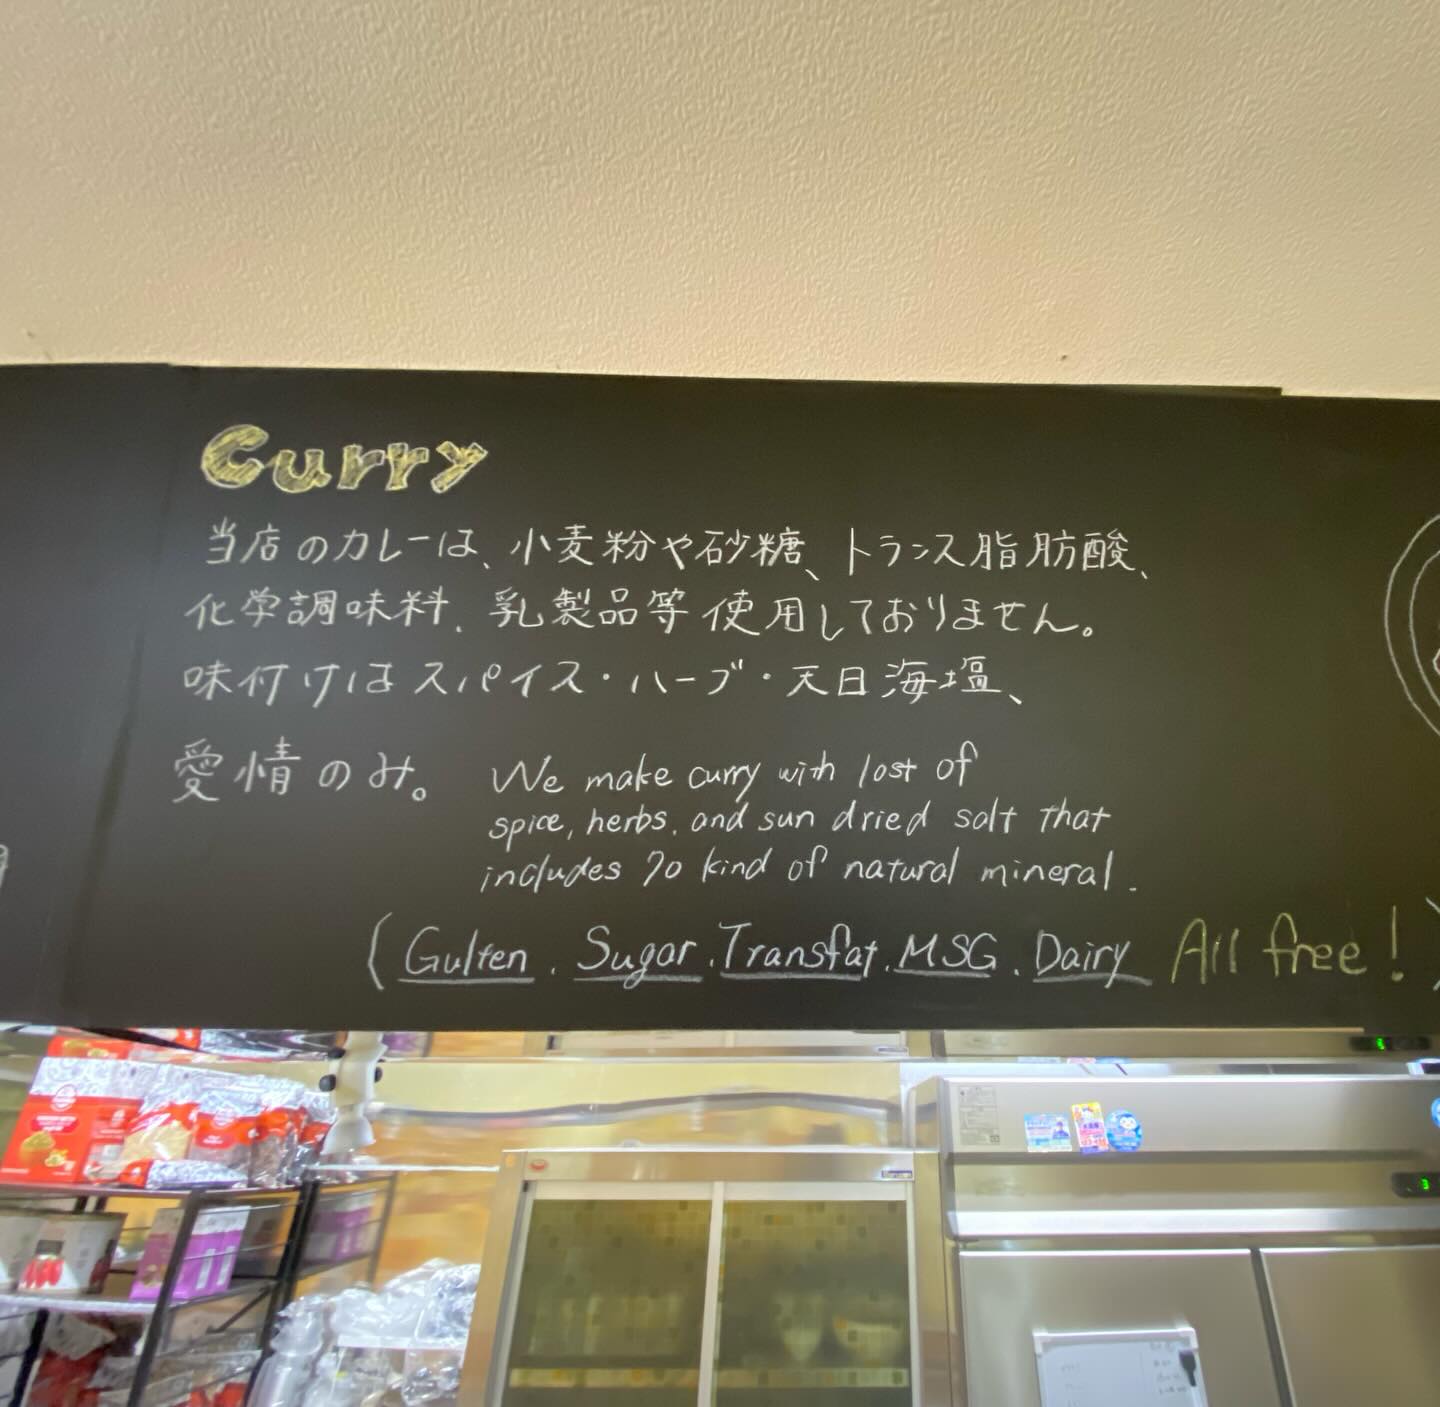 Curry
当店のカレーは、小麦粉や砂糖、トランス脂肪酸、
化学調味料、乳製品等使用しておりません。
味付けはスパイス・ハーブ・天日海塩、
愛情のみ。
We make curry with lost of
spice, herbs, and sun dried salt that
includes 70 kind of natural mineral.
(Gulten, Sugar, Transfat, MSG, Dairy All free!)